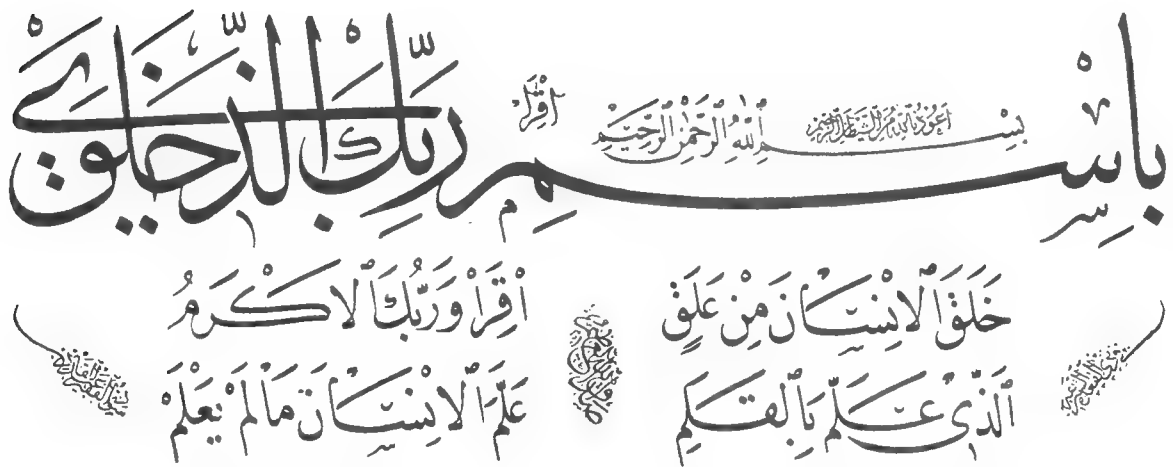 أعوذ بالله من الشيطان الرجيم
بِسْمِ اللّٰهِ الرَّحْمٰنِ الرَّحِيْمِ
اِقْرَاْ
بِاسْمِ رَبِّكَ الَّذِي خَلَقَ
خَلَقَ الْاِنْسَانَ مِنْ عَلَقٍ
اِقْرَاْ وَرَبُّكَ الْاَكْرَمُ
الَّذِي عَلَّمَ بِالْقَلَمِ
عَلَّمَ الْاِنْسَانَ مَا لَمْ يَعْلَمْ